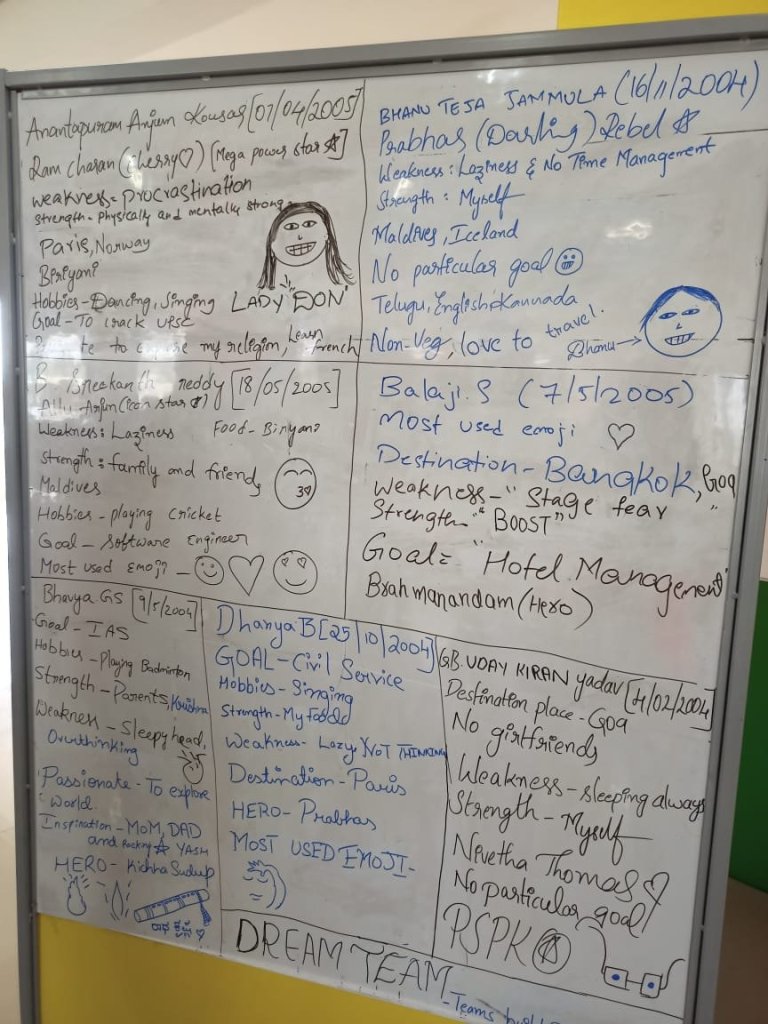 Anantapuram Anjum Kousar [07/04/2005]
Ram charan (cherry♡) [Mega power star ☆]
Weakness - Procrastination
Strength - Physically and mentally strong
Paris, Norway
Biriyani
Hobbies - Dancing, Singing
LADY DON
Goal - To crack UPSC
to my religion, Learn french
BHANU TEJA JAMMULA (16/11/2004)
Prabhas (Darling) Rebel ☆
Weakness : Laziness & No Time Management
Strength : Myself
Maldives, Iceland
No particular goal 😀
Telugu, English, Kannada
Non-Veg, love to travel.
Bhanu →
B. Sreekanth reddy [18/05/2005]
Allu Arjun (icon star ☆)
Weakness : Laziness Food - Biriyani
Strength : family and friends
Maldives
Hobbies - playing cricket
Goal - Software Engineer
Most used Emoji - 🙂 ♡ 😍
Balaji. S (7/5/2005)
Most used emoji ♡
Destination - Bangkok, Goa
Weakness - "Stage fear"
Strength - "BOOST"
Goal = "Hotel Management"
Brahmanandam (Hero)
Bhavya GS [9/5/2004]
Goal - IAS
Hobbies - Playing Badminton
Strength - Parents, Krishna
Weakness - Sleepy head,
Overthinking
Passionate - To explore
World.
Inspiration - MOM, DAD
and Rocking ☆ YASH
HERO - Kichha Sudeep
Dhanya B [25/10/2004]
GOAL - Civil Service
Hobbies - Singing
Strength - My
Weakness - Lazy, NOT THINKING
Destination - Paris
HERO - Prabhas
MOST USED EMOJI -
GB. UDAY KIRAN yadav [/02/2004]
Destination place - Goa
No girlfriends
Weakness - sleeping always
Strength - Myself
Nivetha Thomas ♡
No particular goal
PSPK ☆
DREAM TEAM
- Teams